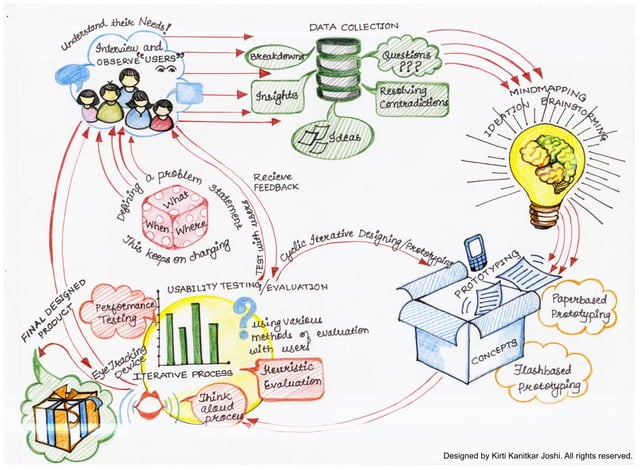 Understand their Needs!
Interview and
OBSERVE "USERS"
DATA COLLECTION
Breakdowns
Questions
???
Insights
Resolving
Contradictions
Ideas
MINDMAPPING
IDEATION BRAINSTORMING
Defining a problem statement
What
When
Where
This keeps on changing
Recieve
FEEDBACK
TEST with users
Cyclic Iterative Designing/Prototyping
PROTOTYPING
CONCEPTS
Paperbased
Prototyping
Flashbased
Prototyping
USABILITY TESTING/EVALUATION
Performance
Testing
?
using various
methods of evaluation
with users
Eye Tracking
Device
ITERATIVE PROCESS
Heuristic
Evaluation
Think
aloud
process
FINAL DESIGNED
PRODUCT
Designed by Kirti Kanitkar Joshi. All rights reserved.